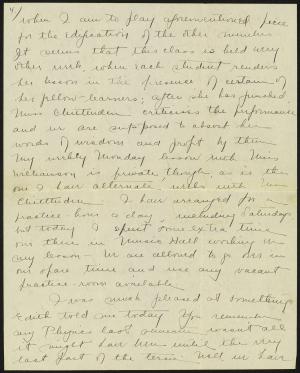 4/
when I am to play aforementioned piece
for the edification of the other members
It seems that this class is held every
other week, when each student renders
her lesson in the presence of certain of
her fellow-learners; after she has finished,
Miss Chittenden criticises the performance
and we are supposed to absorb her
words of wisdom and profit by them
My weekly Monday lesson with Miss
is private though, as is the
one I have alternate weeks with Miss
Chittenden. I have arranged for a
practice-hour a day, including Saturdays
but today I spent some extra time
over there in Music Hall working on
my lesson - We are allowed to go over in
our spare time and use any vacant
practice-room available.
I was much pleased at something
Edith told me today You remember
my Physics last semester wasn't all
it might have been until the very
last part of the term. Well in